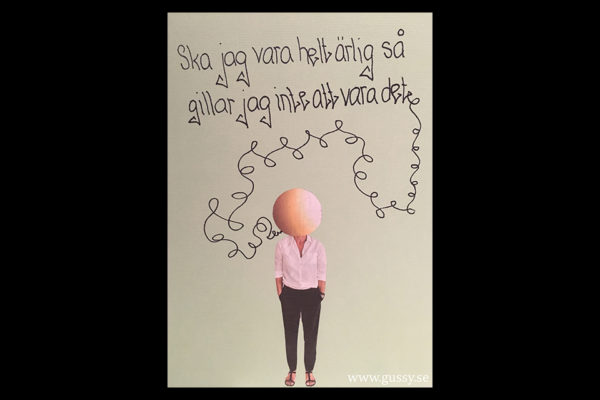 Ska jag vara helt ärlig så
gillar jag inte att vara det
www.gussy.se